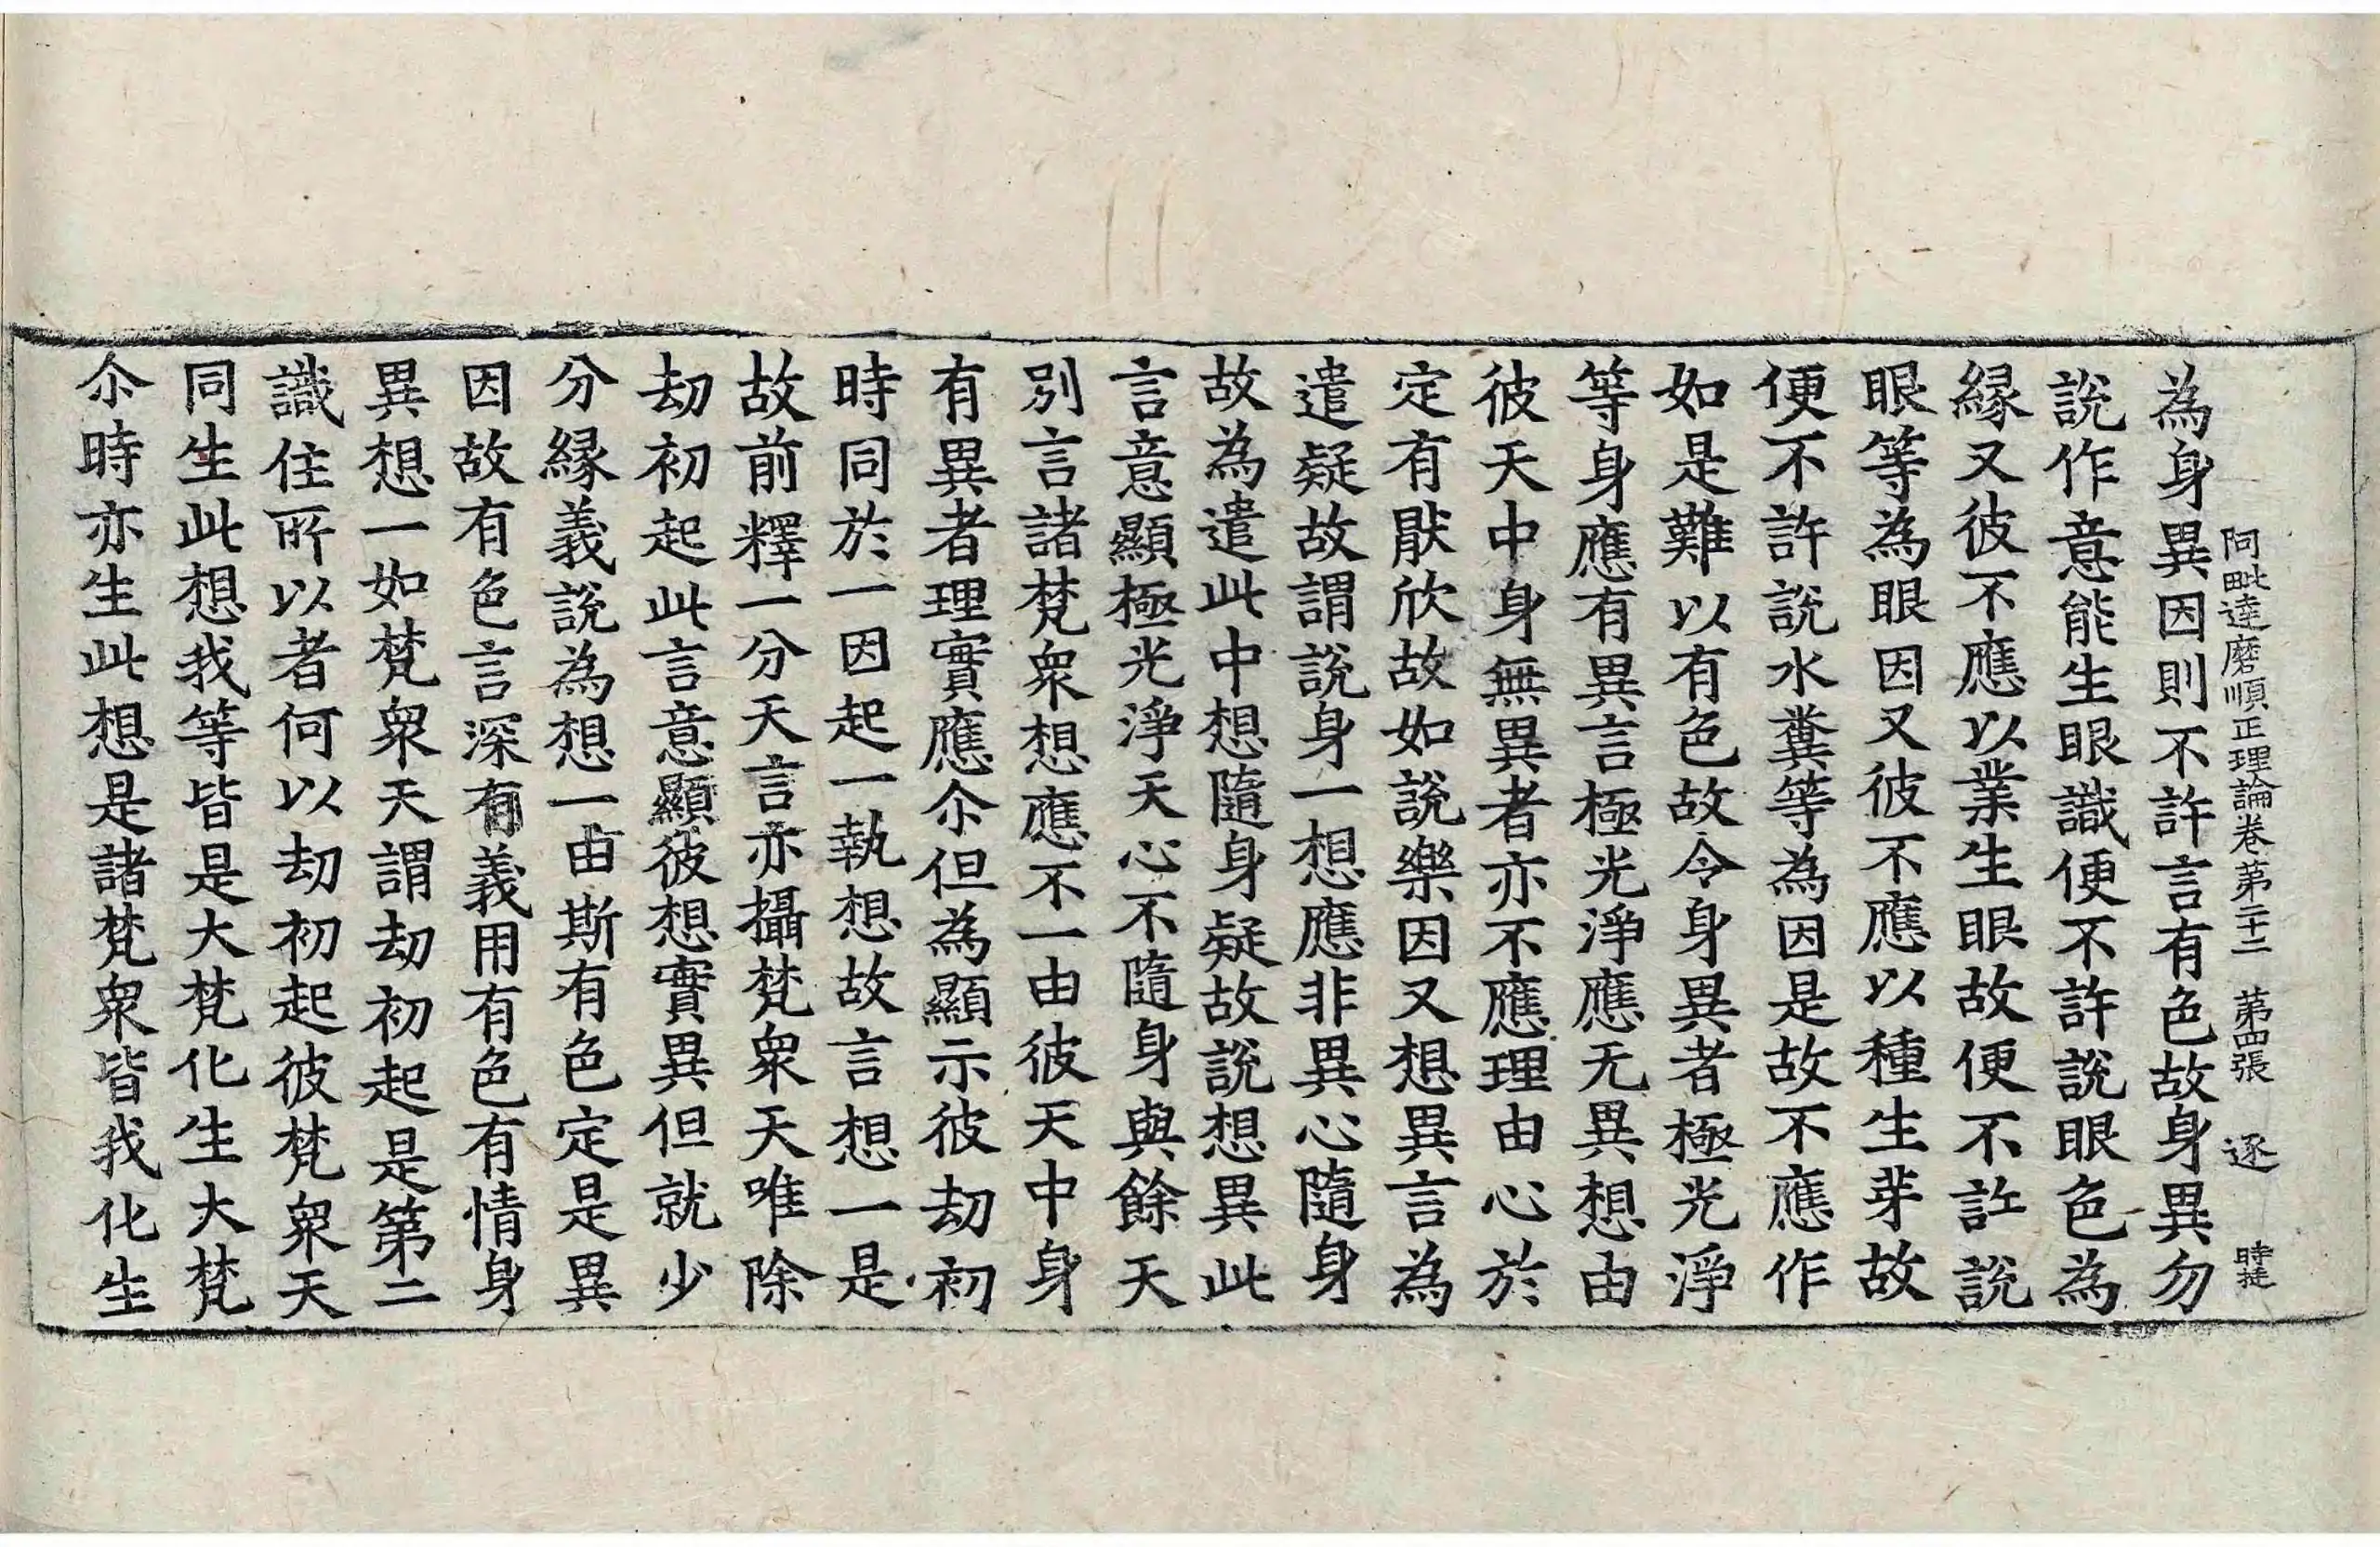 阿毗達磨順正理論卷第二十二　第四張　逐　時挻
為身異因則不許言有色故身異勿
說作意能生眼識便不許說眼色為
緣又彼不應以業生眼故便不許說
眼等為眼因又彼不應以種生芽故
便不許說水糞等為因是故不應作
如是難以有色故令身異者極光淨
等身應有異言極光淨應无異想由
彼天中身無異者亦不應理由心於
定有猒欣故如說樂因又想異言為
遣疑故謂說身一想應非異心隨身
故為遣此中想隨身疑故說想異此
言意顯極光淨天心不隨身與餘天
別言諸梵衆想應不一由彼天中身
有異者理實應尒但為顯示彼劫初
時同於一因起一執想故言想一是
故前釋一分天言亦攝梵衆天唯除
劫初起此言意顯彼想實異但就少
分緣義說為想一由斯有色定是異
因故有色言深有義用有色有情身
異想一如梵衆天謂劫初起是第二
識住所以者何以劫初起彼梵衆天
同生此想我等皆是大梵化生大梵
尒時亦生此想是諸梵衆皆我化生